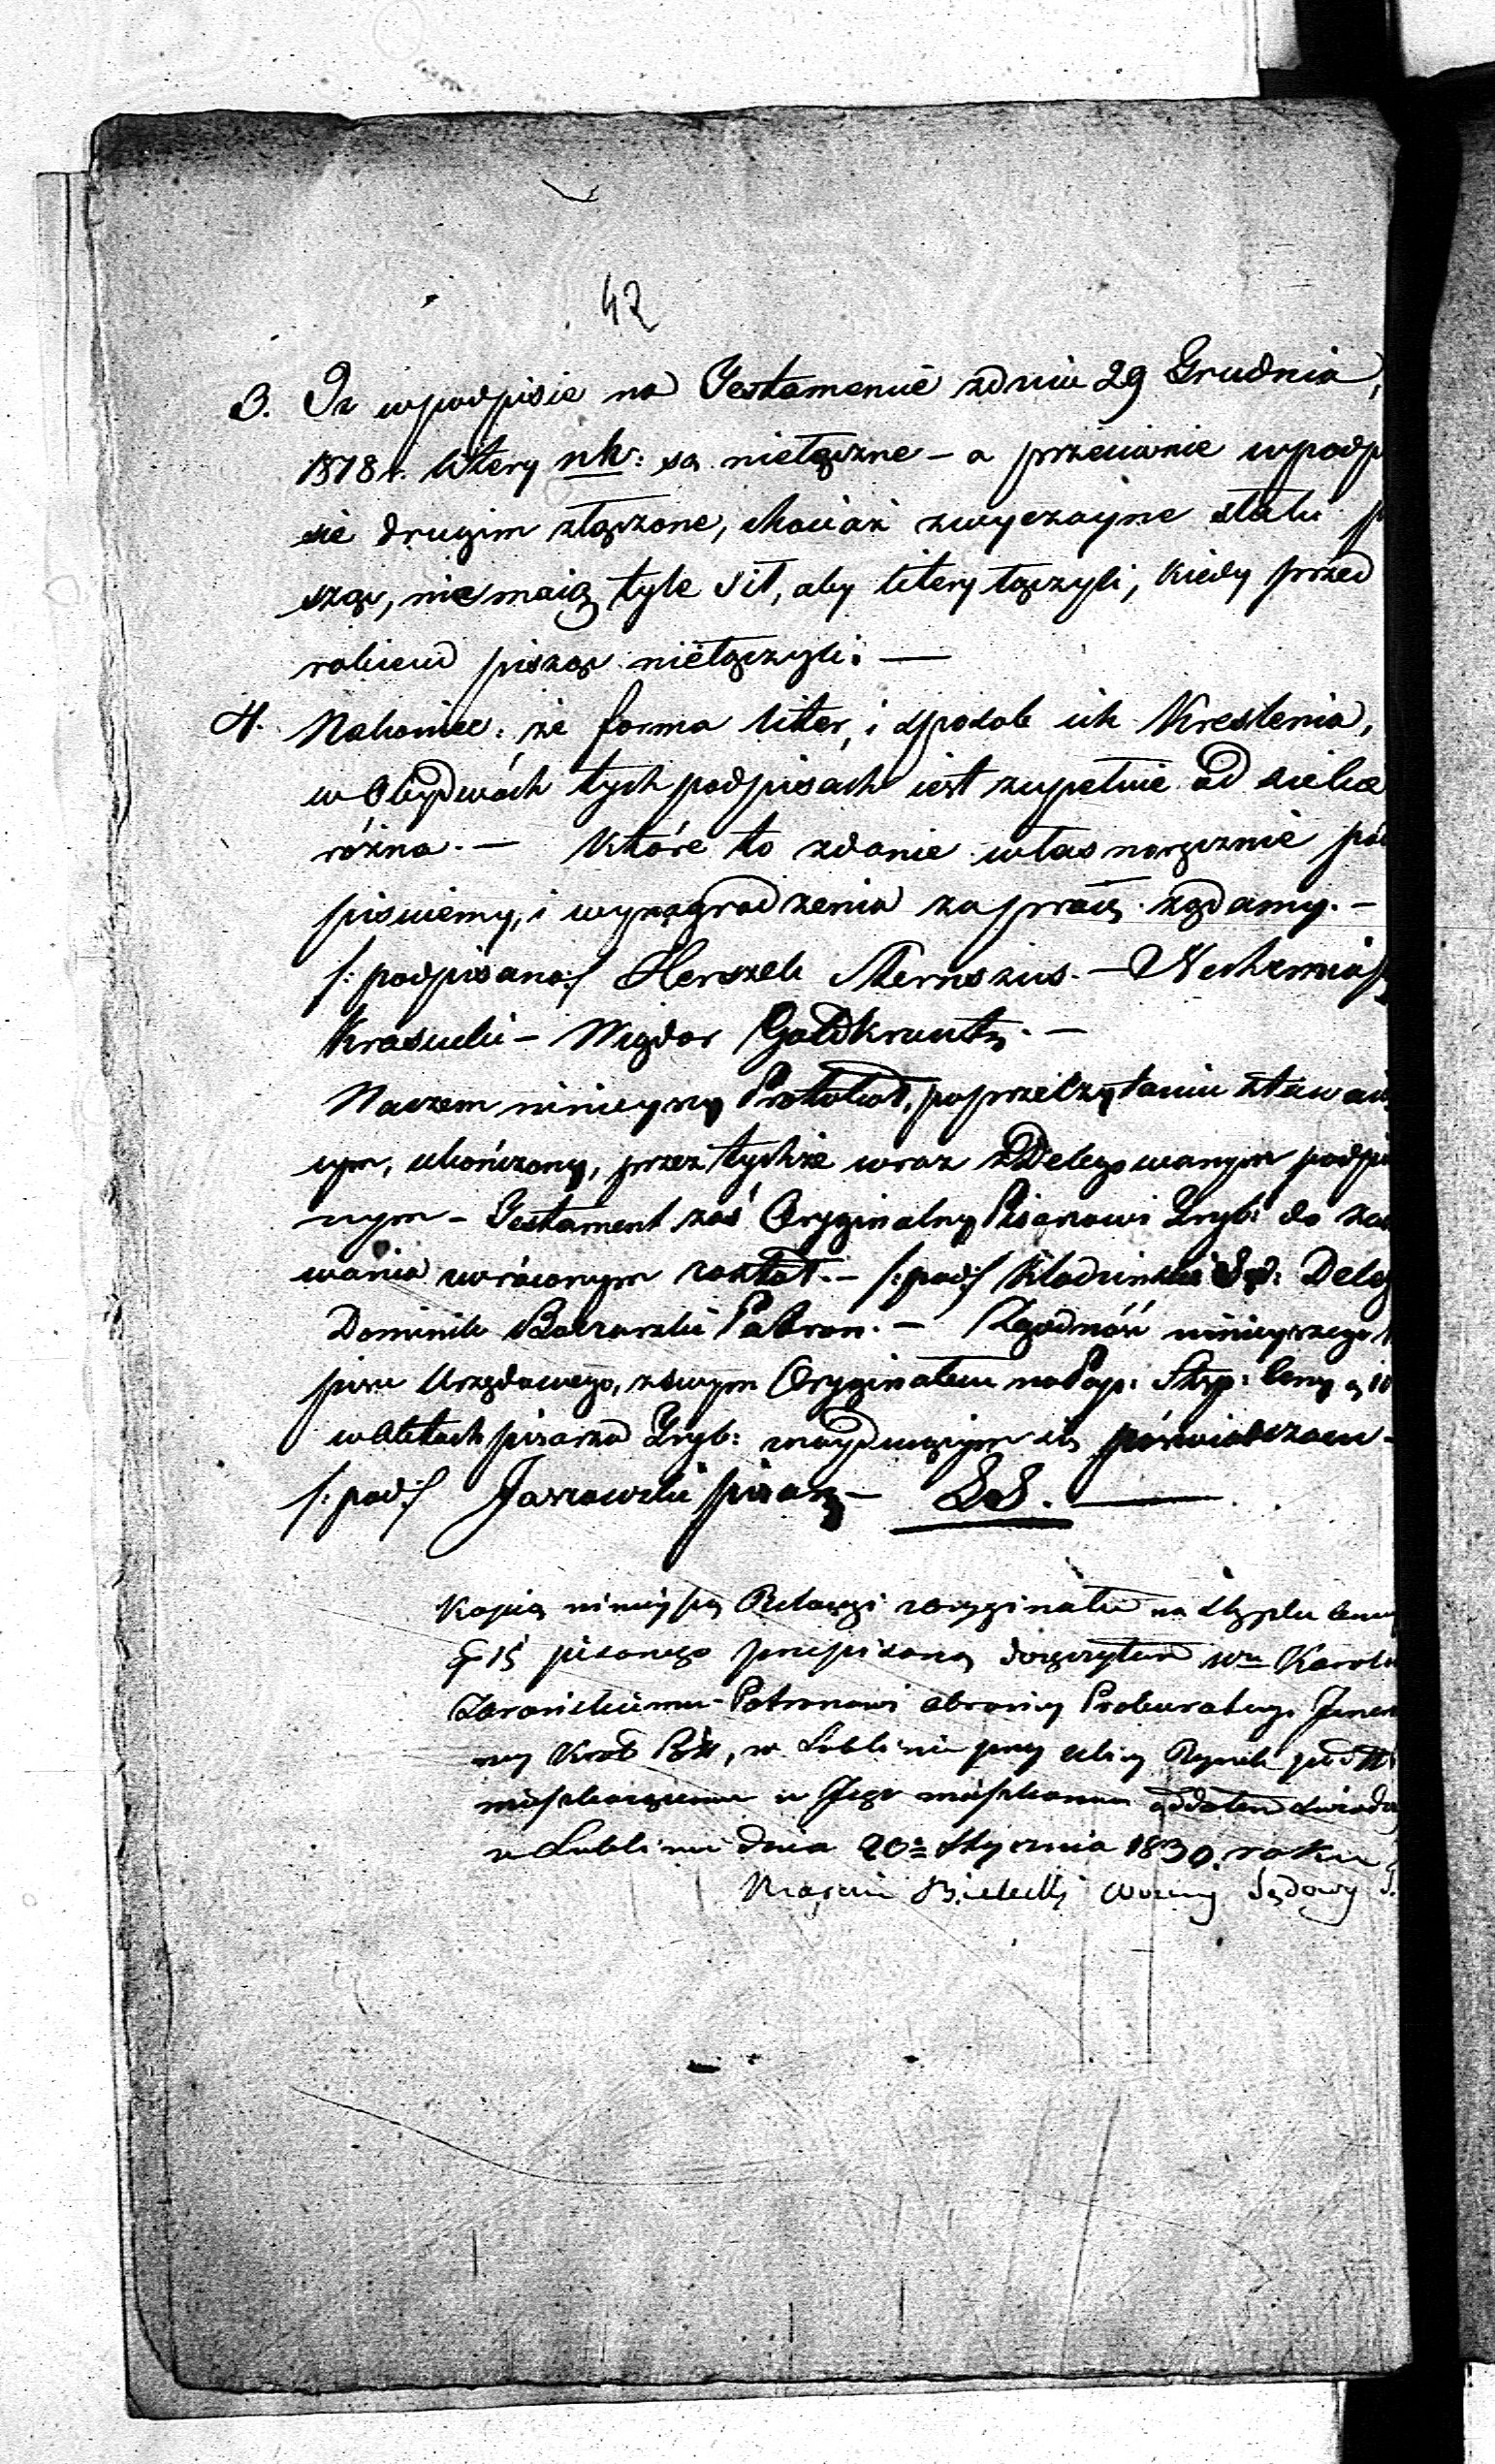 42
3. Iż w podpisie na Testamencie z dnia 29 Grudnia,
1818 r. litery nk: są niełączne – a przeciwnie w podp
sie drugim złączone, chociaż zwyczaynie
sząc, nie maią tyle sił, aby litery łączyli, kiedy przed
rokiem pisząc niełączyli. —
4. Nakoniec: że forma liter, i sposób ich Kreślenia,
w Obydwóch tych podpisach iest zupełnie od siebie
różna. — Które to zdanie własnoręcznie pod
pisuiemy, i wynagrodzenia za pracę żądamy. –
/: podpisano :/ Herszek – Nechemia
Krasucki – Wigdor
Naczem ninieyszy Protokół, po przeczytaniu stawaią
cym, ukończony, przez tychże wraz z Delegowanym podpisa
nym – Testament zaś Oryginalny Pisarzowi Tryb: do zacho
wania wróconym został. – /: pod :/ Sęd: Deleg
Dominik Patron. – Zgodność ninieyszego
pisu Urzędowego, z swym Oryginałem na Pap: Stęp: Ceny
w Aktach pisarza Tryb: znayduiącym się poświadczam –
/: pod :/ pisarz – LS. —
Kopią ninieyszą Relacyi z oryginału na stęplu ceny
pisanego przepisaną doręczyłem Wu Karolo
Patronowi Obrońcy Prokuratoryi Gener
ney Król Pols, w Lublinie przy ulicy Rynek pod
mieszkaiącemu w Jego mieszkaniu oddałem
w Lublinie dnia 20 Stycznia 1830. roku
Marcin Woźny Sądowy